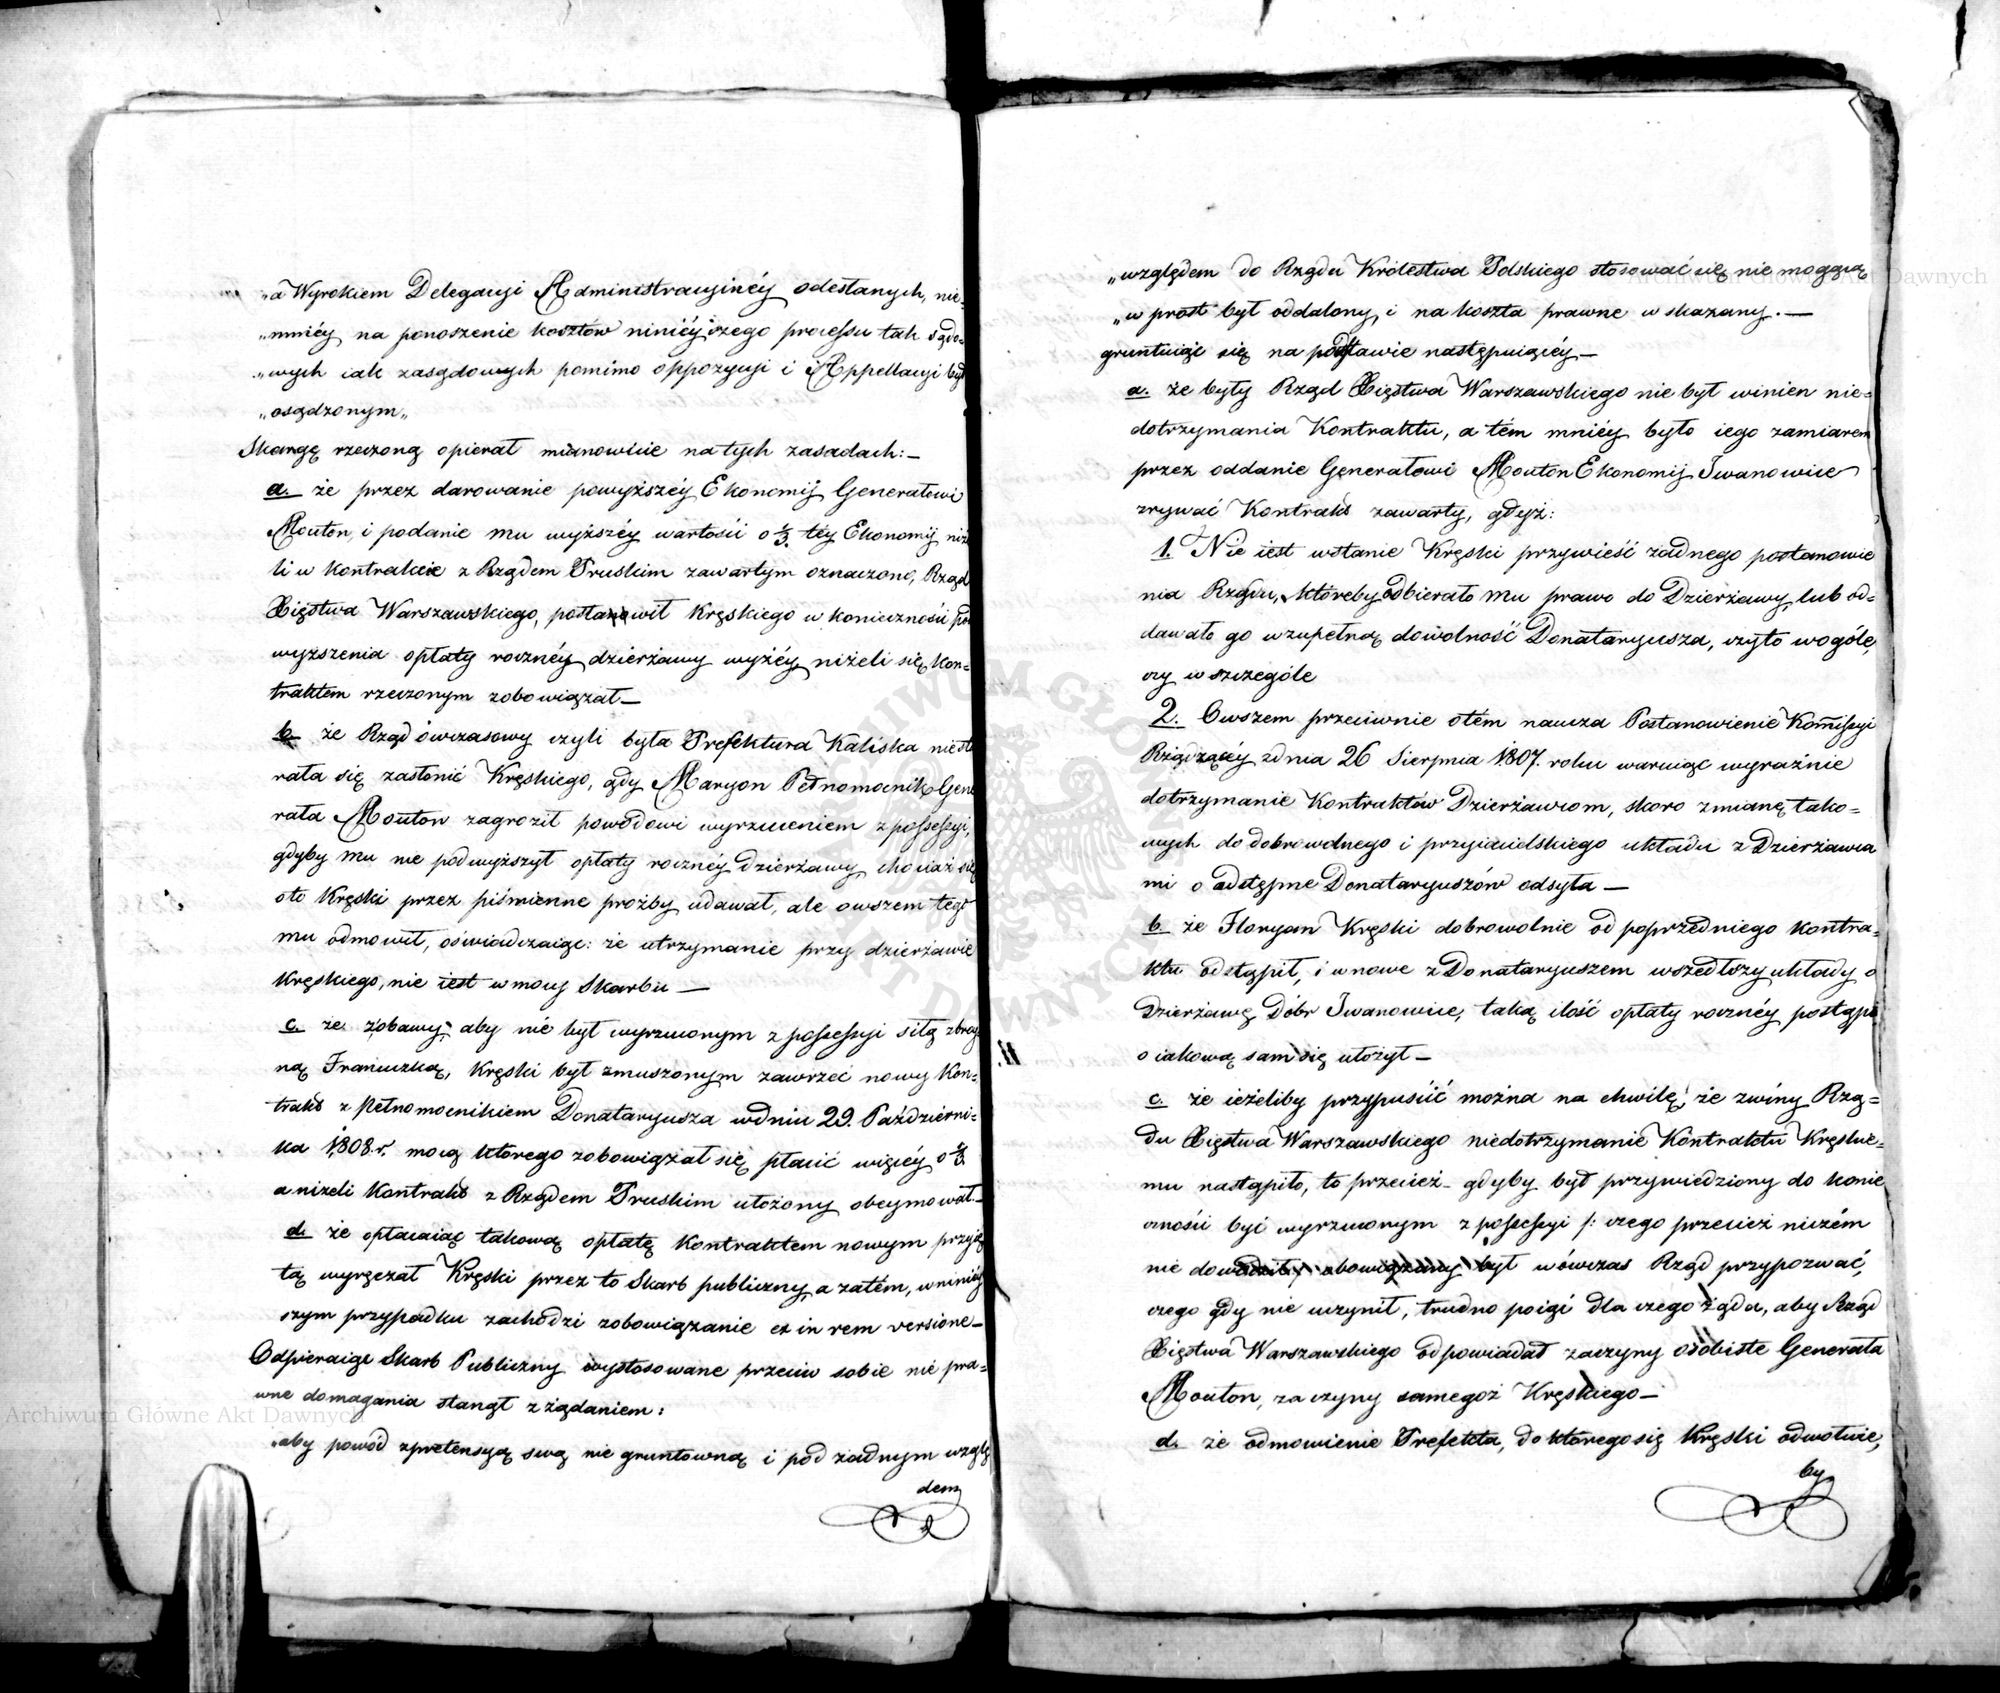 „a Wyrokiem Delegacyi Administracyinéy odesłanych, nie-
„mniéy na ponoszenie kosztów ninieyszego processu tak sądo-
„wych iak zasądowych pomimo oppozycyi i Appellacyi był
„osądzonym„
Skargę rzeczoną opierał mianowicie na tych zasadach:—
a. że przez darowanie powyższéy Ekonomij Generałowi
Mouton, i podanie mu wyższéy wartości o ⅔. téy Ekonomij niże
li w kontrakcie z Rządem Pruskim zawartym oznaczono, Rząd
Xięstwa Warszawskiego, postanowił Kręskiego w konieczności po
wyższenia opłaty rocznéy dzierżawy wyżéy niżeli się kon-
traktem rzeczonym zobowiązał—
b. że Rząd ówczasowy czyli była Prefektura Kaliska niesta
rała się zasłonić Kręskiego, gdy Maryon Pełnomocnik Gene
rała Mouton zagroził powodowi wyrzuceniem z possessyi,
gdyby mu nie podwyższył opłaty rocznéy dzierżawy, chociaż się
oto Kręski przez piśmienne prożby udawał, ale owszem tego
mu odmowił, oświadczaiąc: że utrzymanie przy dzierżawie
Kręskiego, nie iest w mocy Skarbu —
c. że z obawy, aby nie był wyrzuconym z possessyi siłą zbroy
ną Francuzką, Kręski był zmuszonym zawrzeć nowy Kon-
trakt z Pełnomocnikiem Donataryusza w dniu 29. Październi-
ka 1808. r. mocą którego zobowiązał się płacić więcéy o ⅔.
a niżeli Kontrakt z Rządem Pruskim ułożony obeymował—
d. że opłacaiąc takową opłatę Kontraktem nowym przyię
tą wyręczał Kręski przez to Skarb publiczny, a zatém, w niniey
szym przypadku zachodzi zobowiązanie ex in rem versione—
Odpieraiąc Skarb Publiczny wystosowane przeciw sobie nie pra-
wne domagania stanął z żądaniem:
„aby powód z pretensyą swą nie gruntowną i pod żadnym wzglę
dem
„względem do Rządu Królestwa Polskiego stosować się nie mogącą
„wprost był oddalony, i na koszta prawne wskazany.—
gruntuiąc się na podstawie następuiącéy—
a. że były Rząd Xięstwa Warszawskiego nie był winien nie-
dotrzymania Kontraktu, a tém mniéy było iego zamiarem
przez oddanie Generałowi Mouton Ekonomij Iwanowice
zrywać Kontrakt zawarty, gdyż:
1. Nie iest wstanie Kręski przywieść żadnego postanowie
nia Rządu, któreby odbierało mu prawo do Dzierżawy, lub od-
dawało go w zupełną dowolność Donataryusza, czyto wogóle,
czy w szczególe
2. Owszem przeciwnie otém naucza Postanowienie Kom̃issyi
Rządzącéy z dnia 26 Sierpnia 1807. roku waruiąc wyraźnie
dotrzymanie Kontraktów Dzierżawcom, skoro zmianę tako-
wych do dobrowolnego i przyiacielskiego układu z Dzierżawca
mi o odstępne Donataryuszów odsyła —
b. że Floryan Kręski dobrowolnie od poprzedniego kontra-
ktu odstąpił, i w nowe z Donataryuszem wszedłszy układy o
Dzierżawę Dóbr Iwanowice, taką ilość opłaty rocznéy postąpił
o iakową sam się ułożył—
c. że ieżeliby przypuścić można na chwilę, że zwiny Rzą-
du Xięstwa Warszawskiego niedotrzymanie Kontraktu Kręskie-
mu nastąpiło, to przecież gdyby był przywiedziony do konie
czności być wyrzuconym z possessyi /: czego przecież niczém
nie dowodził :/ obowiązany był wówczas Rząd przypozwać,
czego gdy nie uczynił, trudno poiąć dla czego żąda, aby Rząd
Xięstwa Warszawskiego odpowiadał za czyny osobiste Generała
Mouton, za czyny samegoż Kręskiego—
d. że odmowienie Prefekta, do którego się Kręski odwołuie,
by
Archiwum Główne Akt Dawnych
Archiwum Główne Akt Dawnych
ARCHIWUM GŁÓWNE AKT DAWNYCH